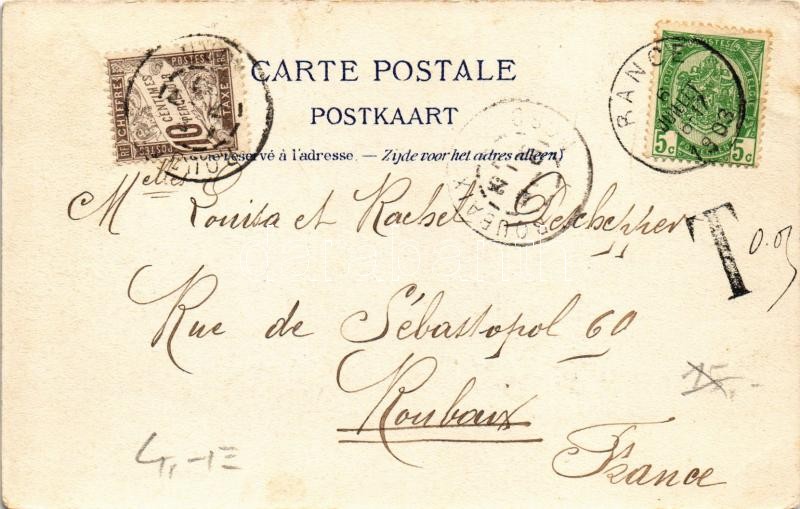 CHIFFRE TAXE
POSTES
10
CENTIMES
À PERCEVOIR
CARTE POSTALE
POSTKAART
réservé à l'adresse. — Zijde voor het adres alleen)
RANCE
1903
5c 5c
ROUBAIX
Melles Louisa et Rachel Deschepper
T 0.05
Rue de Sébastopol 60
Roubaix
France
15,-
4,-=